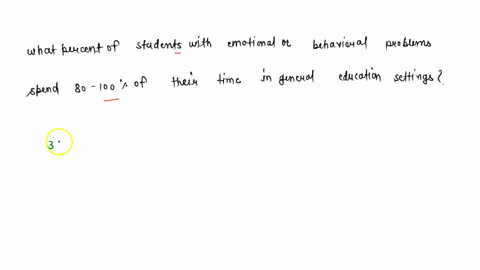 what percent of students with emotional or behavioral problems
spend 80-100% of their time in general education settings?
3